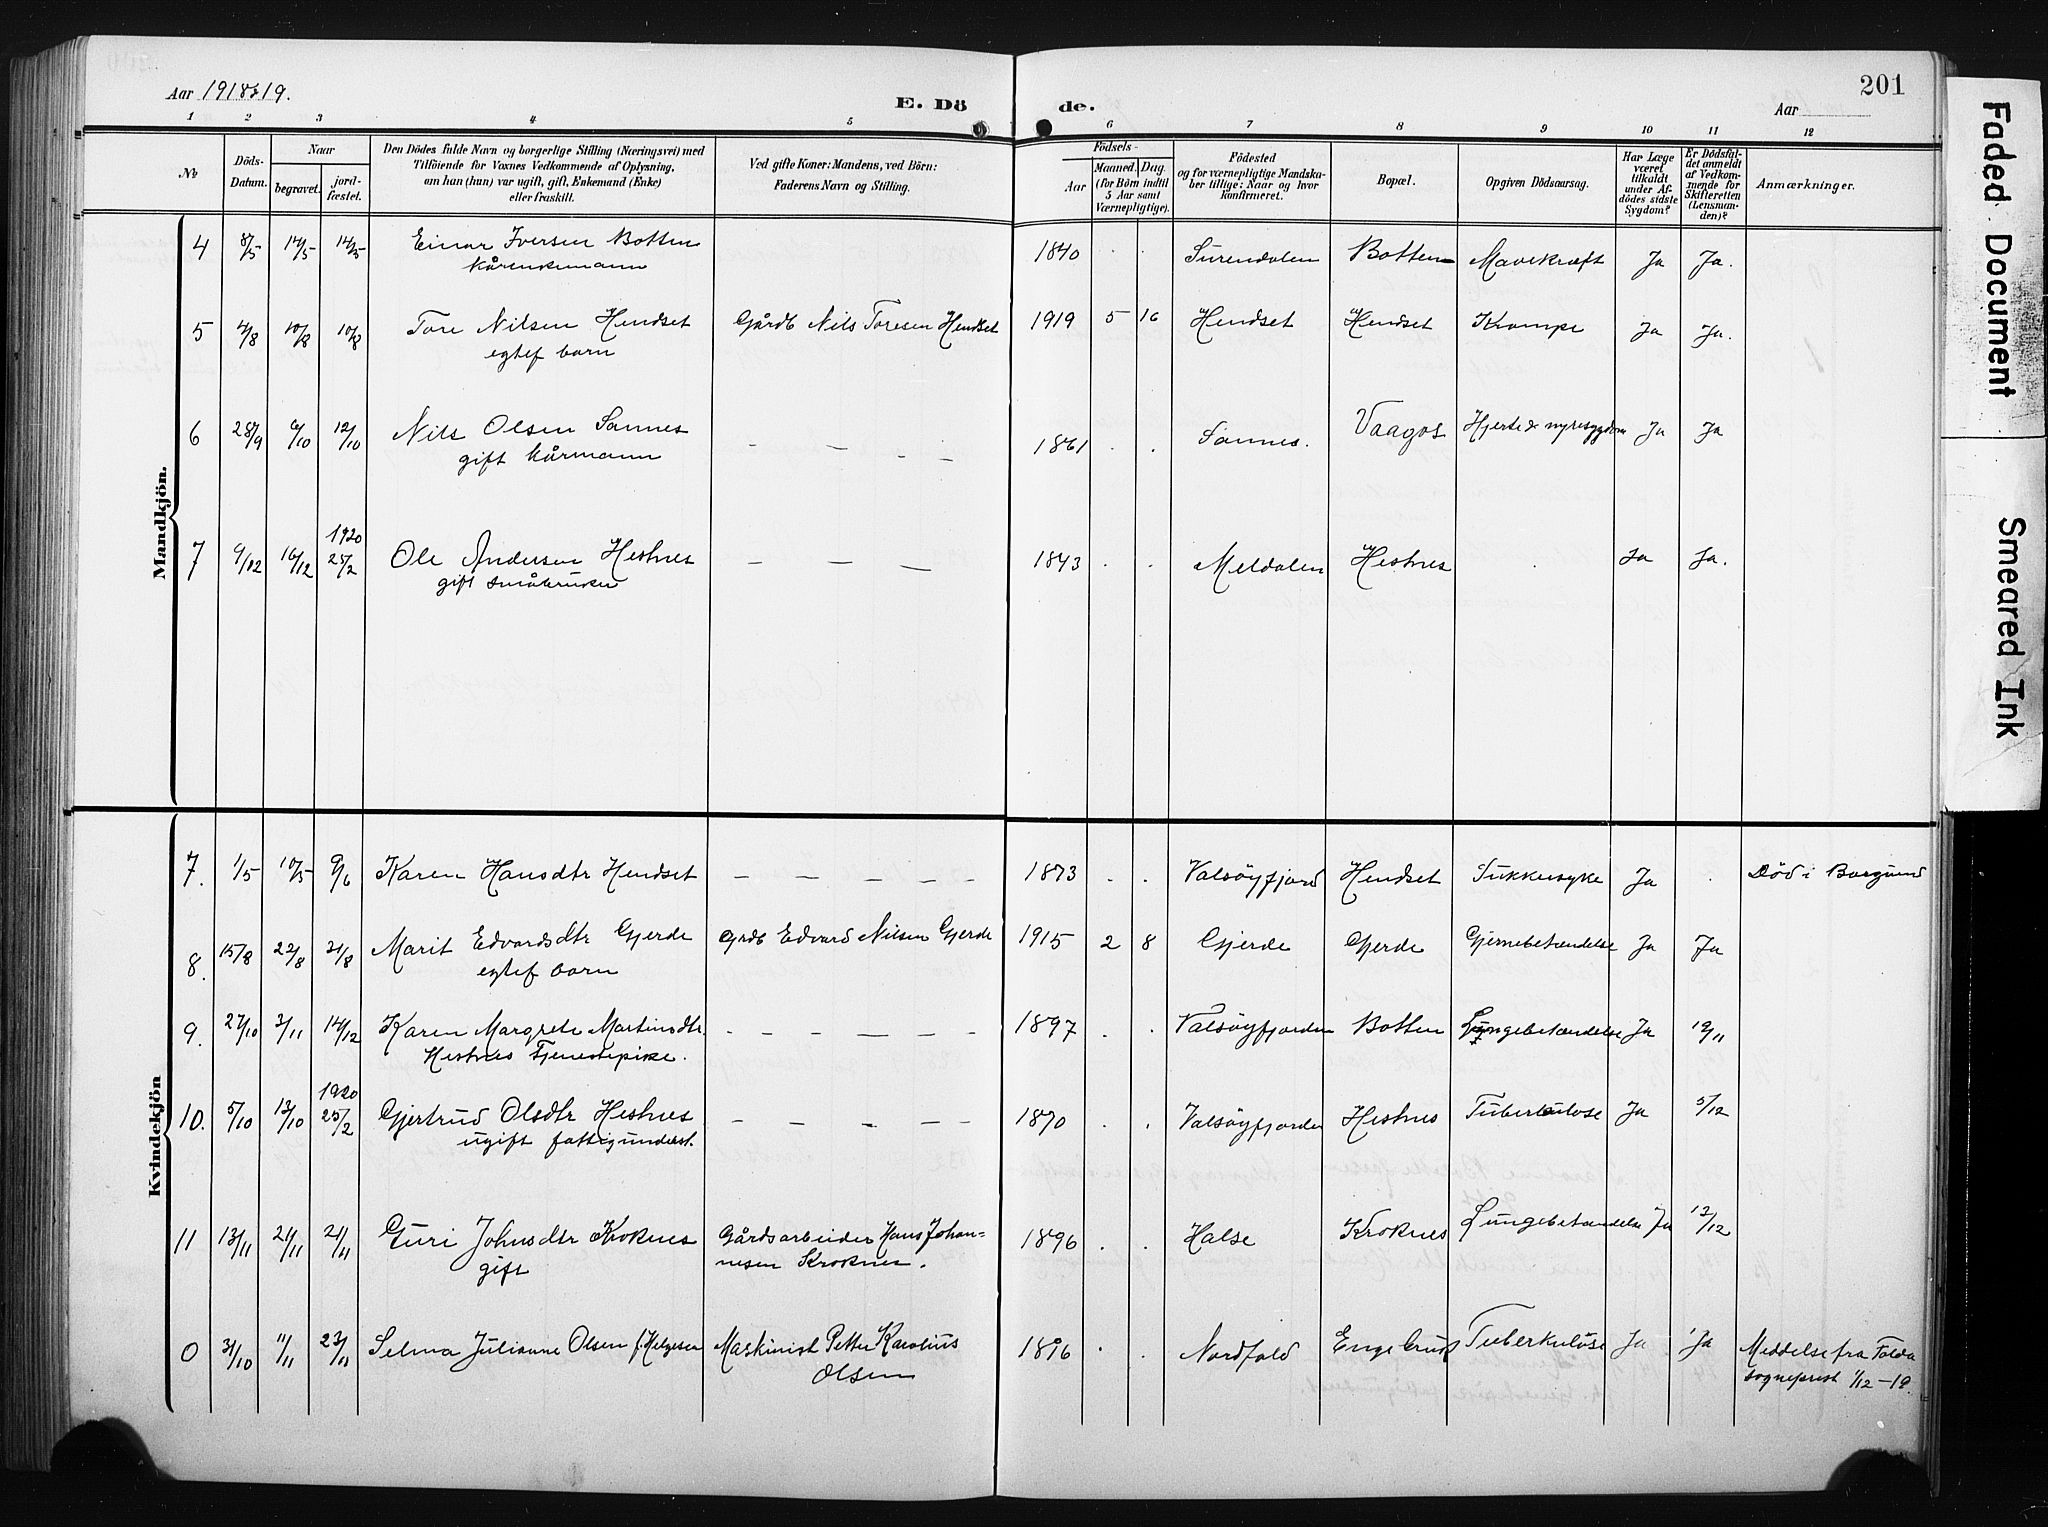 Aar 1918 & 19.
E. Dö de.
Aar
201
1 2 3 4 5 6 7 8 9 10 11 12
No
Döds-Datum.
Naar
begravet.
jordfæstet.
Den Dödes fulde Navn og borgerlige Stilling (Næringsvei) med
Tilföiende for Voxnes Vedkommende af Oplysning,
om han (hun) var ugift, gift, Enkemand (Enke)
eller fraskilt.
Ved gifte Koner: Mandens, ved Börn:
Faderens Navn og Stilling.
Födsels-
Aar
Maaned. Dag.
(for Börn indtil
5 Aar samt
Værnepligtige).
Födested
og for værnepligtige Mandska-
ber tillige: Naar og hvor
konfirmeret.
Bopæl.
Opgiven Dödsaarsag.
Har Læge
været
tilkaldt
under Af-
dödes sidste
Sygdom?
Er Dödsfal-
det anmeldt
af Vedkom-
mende for
Skifteretten
(Lensman-
den)?
Anmærkninger.
Mandkjön.
4 8/5 14/5 14/5 Einar Iversen Botten 1840 . . Surendalen Botten Mavekræft Ja Ja.
kårenkemann
5 4/8 10/8 10/8 Tore Nilsen Hendset Gårdb Nils Toresen Hendset 1919 5 16 Hendset Hendset Krampe Ja Ja.
egtef barn
6 28/9 6/10 12/10 Nils Olsen Sannes — — — — 1861 . . Sannes. Vaagos Hjerte & nyresygdom Ja Ja
gift kårmann
1920
7 9/12 16/12 25/2 Ole Andersen Hestnes — — — 1843 . . Meldalen Hestnes . Ja Ja.
gift småbruker
Kvindekjön
7. 1/5 10/5 9/6 Karen Hansdtr Hendset — — — — — 1873 . . Valsöyfjord Hendset Sukkersyke Ja . Död i Borgund
8. 15/8 22/8 31/8 Marit Edvardsdtr Gjerde Grdb Edvard Nilsen Gjerde 1915 2 8 Gjerde Gjerde Hjernebetændelse Ja Ja
egtef barn
9. 27/10 3/11 14/12 Karen Margrete Martinsdtr. — — — — — 1897 . . Valsöyfjorden Botten Lungebetændelse Ja 10/11
Hestnes Tjenestepike.
1920
10. 5/10 13/10 25/2 Gjertrud Olsdtr Hestnes — — — — — 1870 . . Valsöyfjorden Hestnes Tuberkulose Ja 5/12
ugift fattigunderst.
11 13/11 21/11 21/11 Guri Johnsdtr Kroknes Gårdsarbeider Hans Johan- 1896 . . Halse Kroknes Lungebetændelse Ja 12/12
gift nesen Kroknes.
0 31/10 11/11 23/11 Selma Julianne Olsen f. Helgesen Maskinist Petter Karolius 1896 . . Nordfold Tuberkulose Ja Ja Meddelse fra Folda
Olsen sogneprest 1/12–19.
Faded Document
Smeared Ink